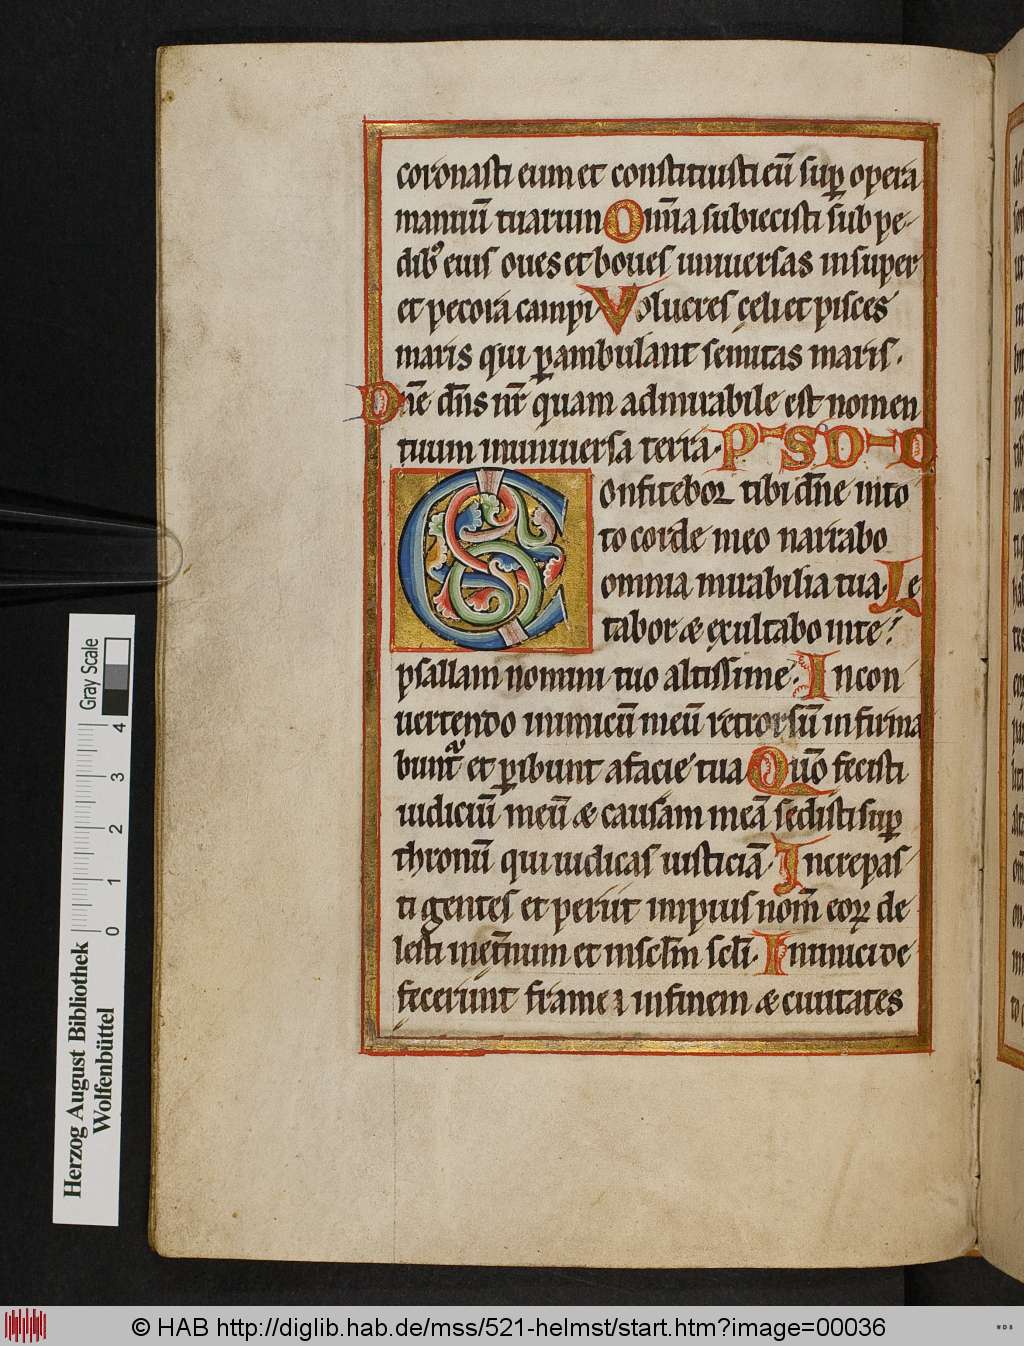 coronasti eum et constituisti eū suꝑ opera
manuū tuarum Omīa subiecisti sub pe-
dibꝰ eius oues et boues uniuersas insuper
et pecora campi Volucres celi et pisces
maris qui ꝑambulant semitas maris.
Dn̄e dn̄s nr̄ quam admirabile est nomen
tuum inuniuersa terra. PSD
Confitebor tibi dn̄e into
to corde meo narrabo
omnia mirabilia tua. Le
tabor & exultabo inte:
psallam nomini tuo altissime. In con
uertendo inimicū meū retrorsū infirma
bunt̄ et ꝑibunt afacie tua Quō fecisti
iudiciū meū & causam meā sedisti suꝑ
thronū qui iudicas iusticiā. Increpas-
ti gentes et periit impius nom̄ eoꝝ de
lesti inet̄num et insclm̄ scli̅. Inimici de
fecerunt frameę infinem & ciuitates
Herzog August Bibliothek
Wolfenbüttel
0 1 2 3 4
Gray Scale
© HAB http://diglib.hab.de/mss/521-helmst/start.htm?image=00036